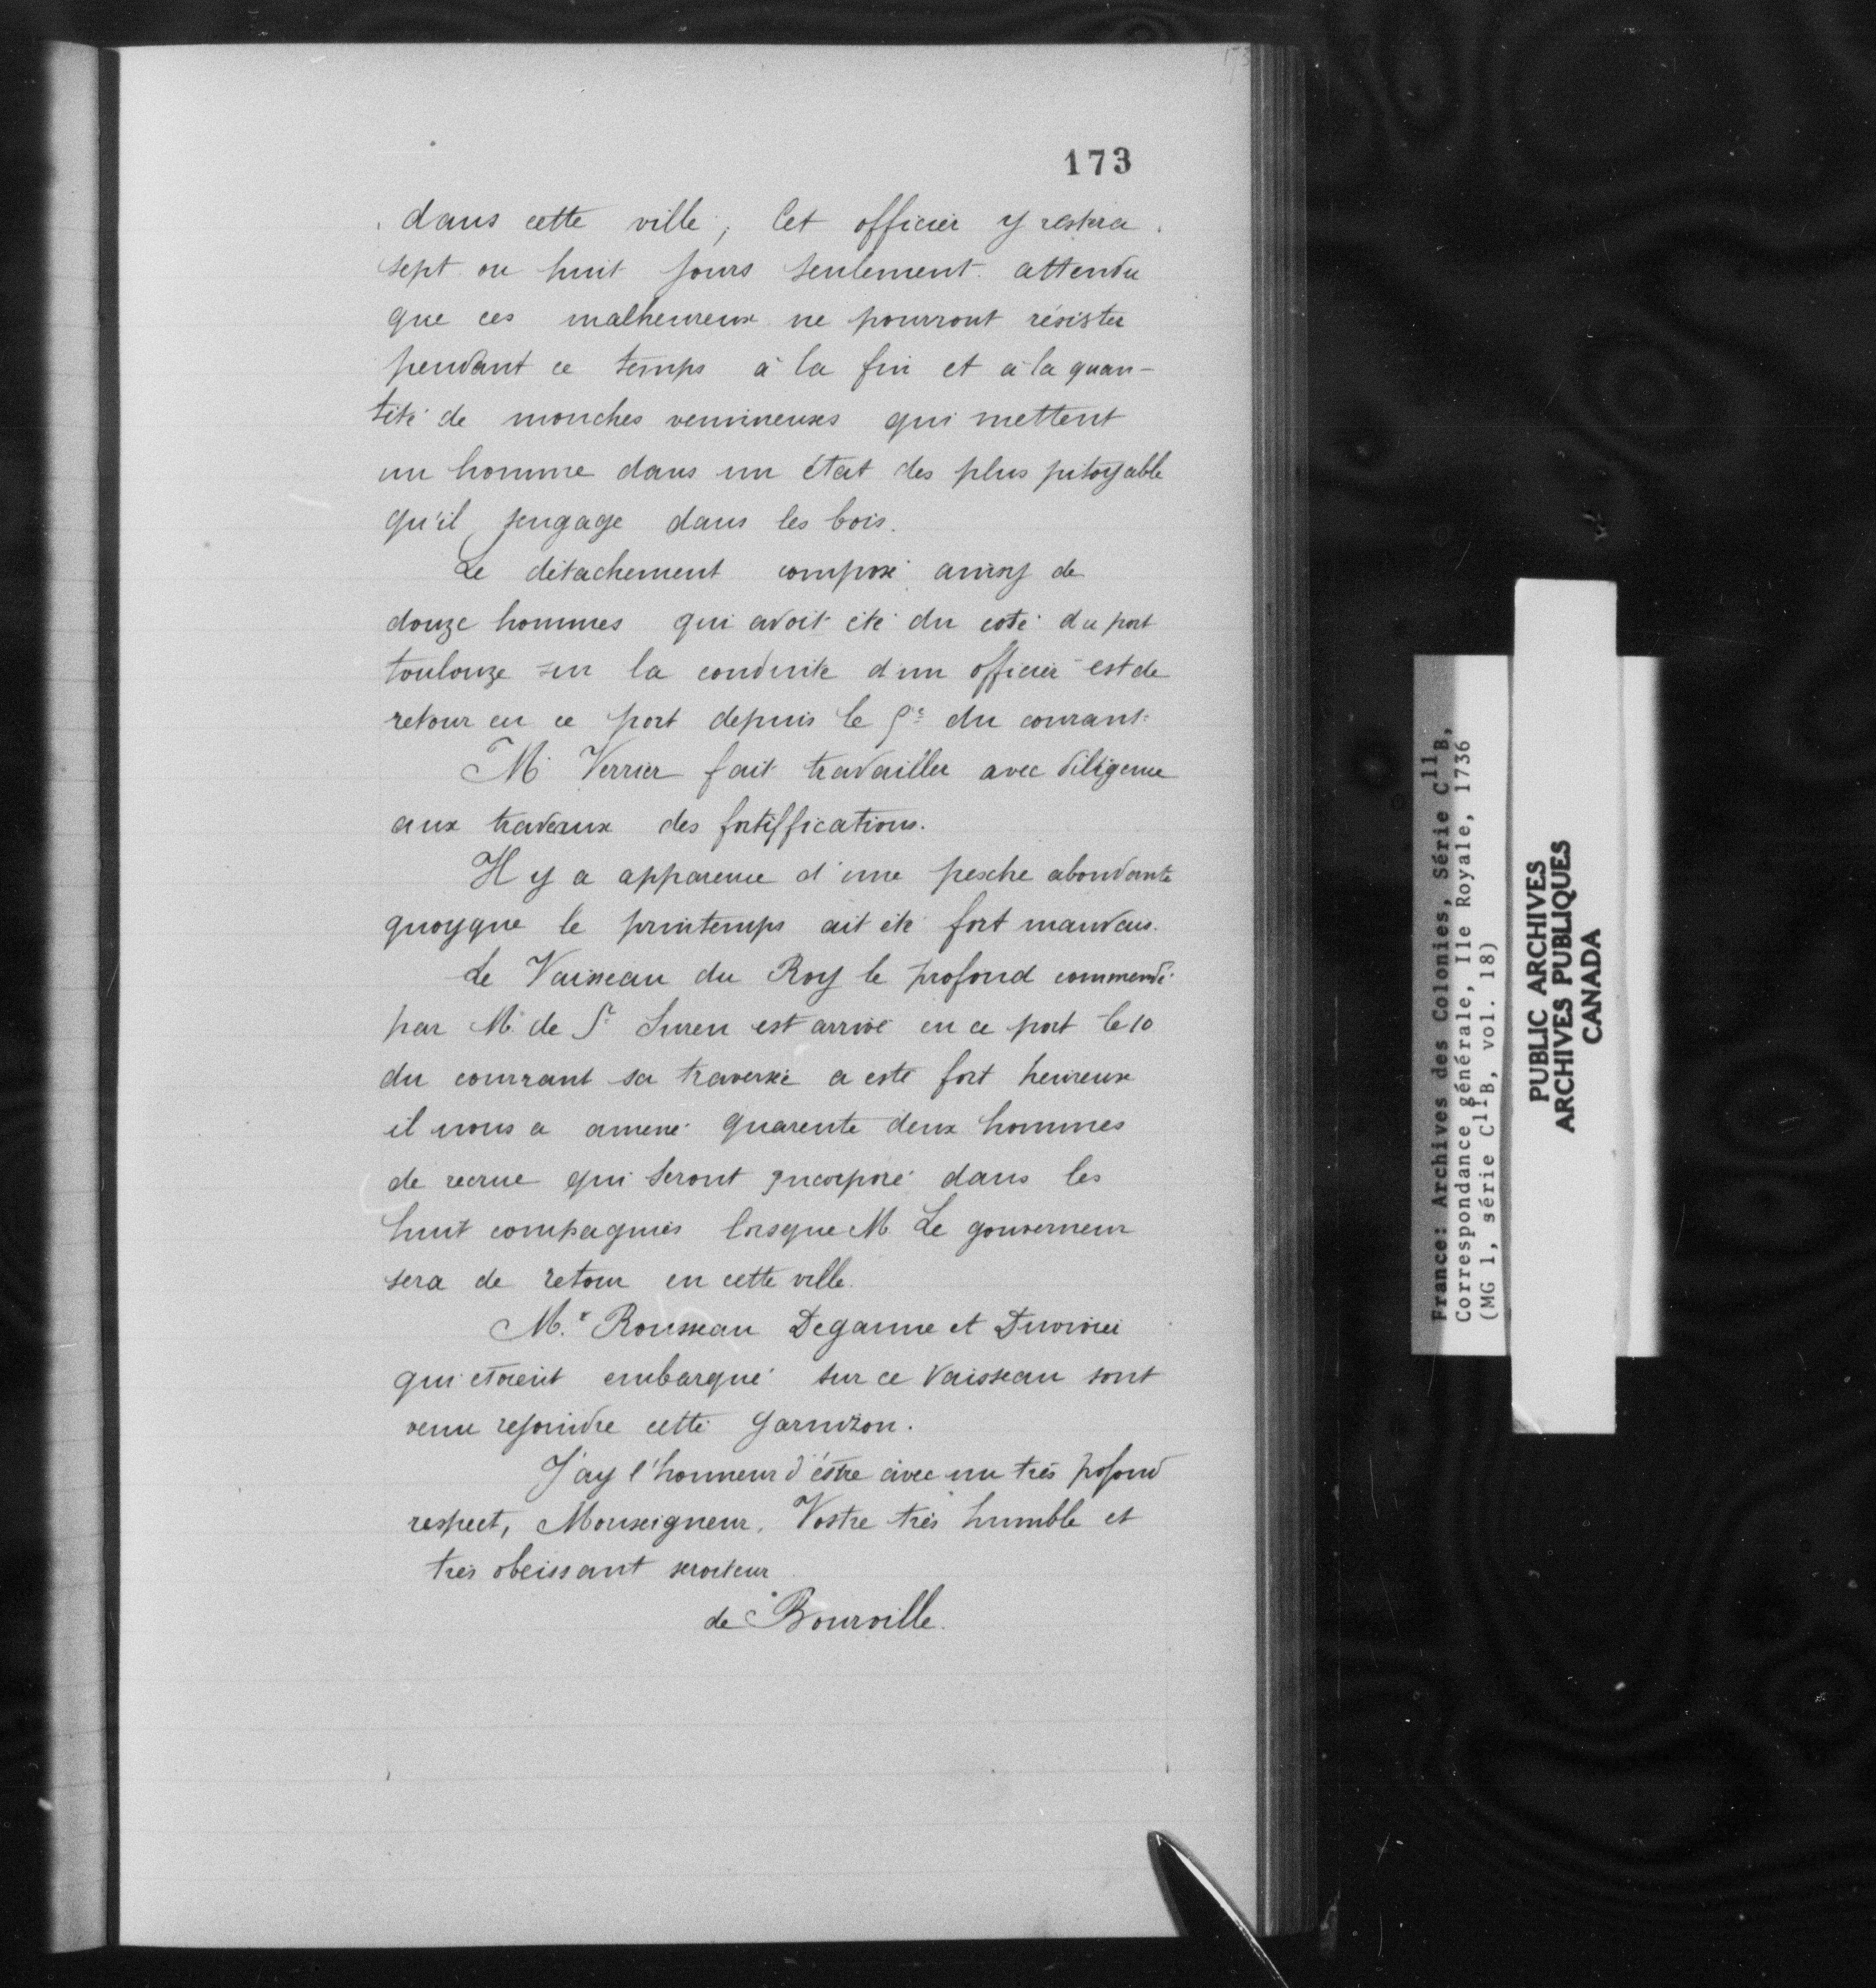 173
dans cette ville; Cet officier y restera
sept ou huit jours seulement attendu
que ces malheureux ne pourront résister
pendant ce temps à la fin et à la quan-
tité de mouches venimeuses qui mettent
un homme dans un état des plus pitoyable
qu'il sengage dans les bois.
Le détachement composé aussy de
douze hommes qui avoit été du coté du port
toulouze sur la conduite d'un officier est de
retour en ce port depuis le du courant
M. Verrier fait travailler avec diligence
aux traveaux des fortiffications.
Il y a apparence d'une pesche abondante
quoyque le printemps ait été fort mauvais.
Le Vaisseau du Roy le profond commendé
par M. de St. Suren est arrivé en ce port le 10
du courrant sa traversée a esté fort heureux
il nous a amené quarente deux hommes
de recrue qui seront incorporé dans les
huit compagnies lorsque M. Le gouverneur
sera de retour en cette ville.
M.r Rousseau Deganne et
qui etoient embarqué sur ce Vaisseau sont
venu rejoindre cette garnizon.
J'ay l'honneur d'éstre avec un très profond
respect, Monseigneur, Vostre très humble et
très obeissant serviteur
de Bourville.
France: Archives des Colonies, Série C11B,
Correspondance générale, Ile Royale, 1736
(MG 1, série C11B, vol. 18)
PUBLIC ARCHIVES
ARCHIVES PUBLIQUES
CANADA